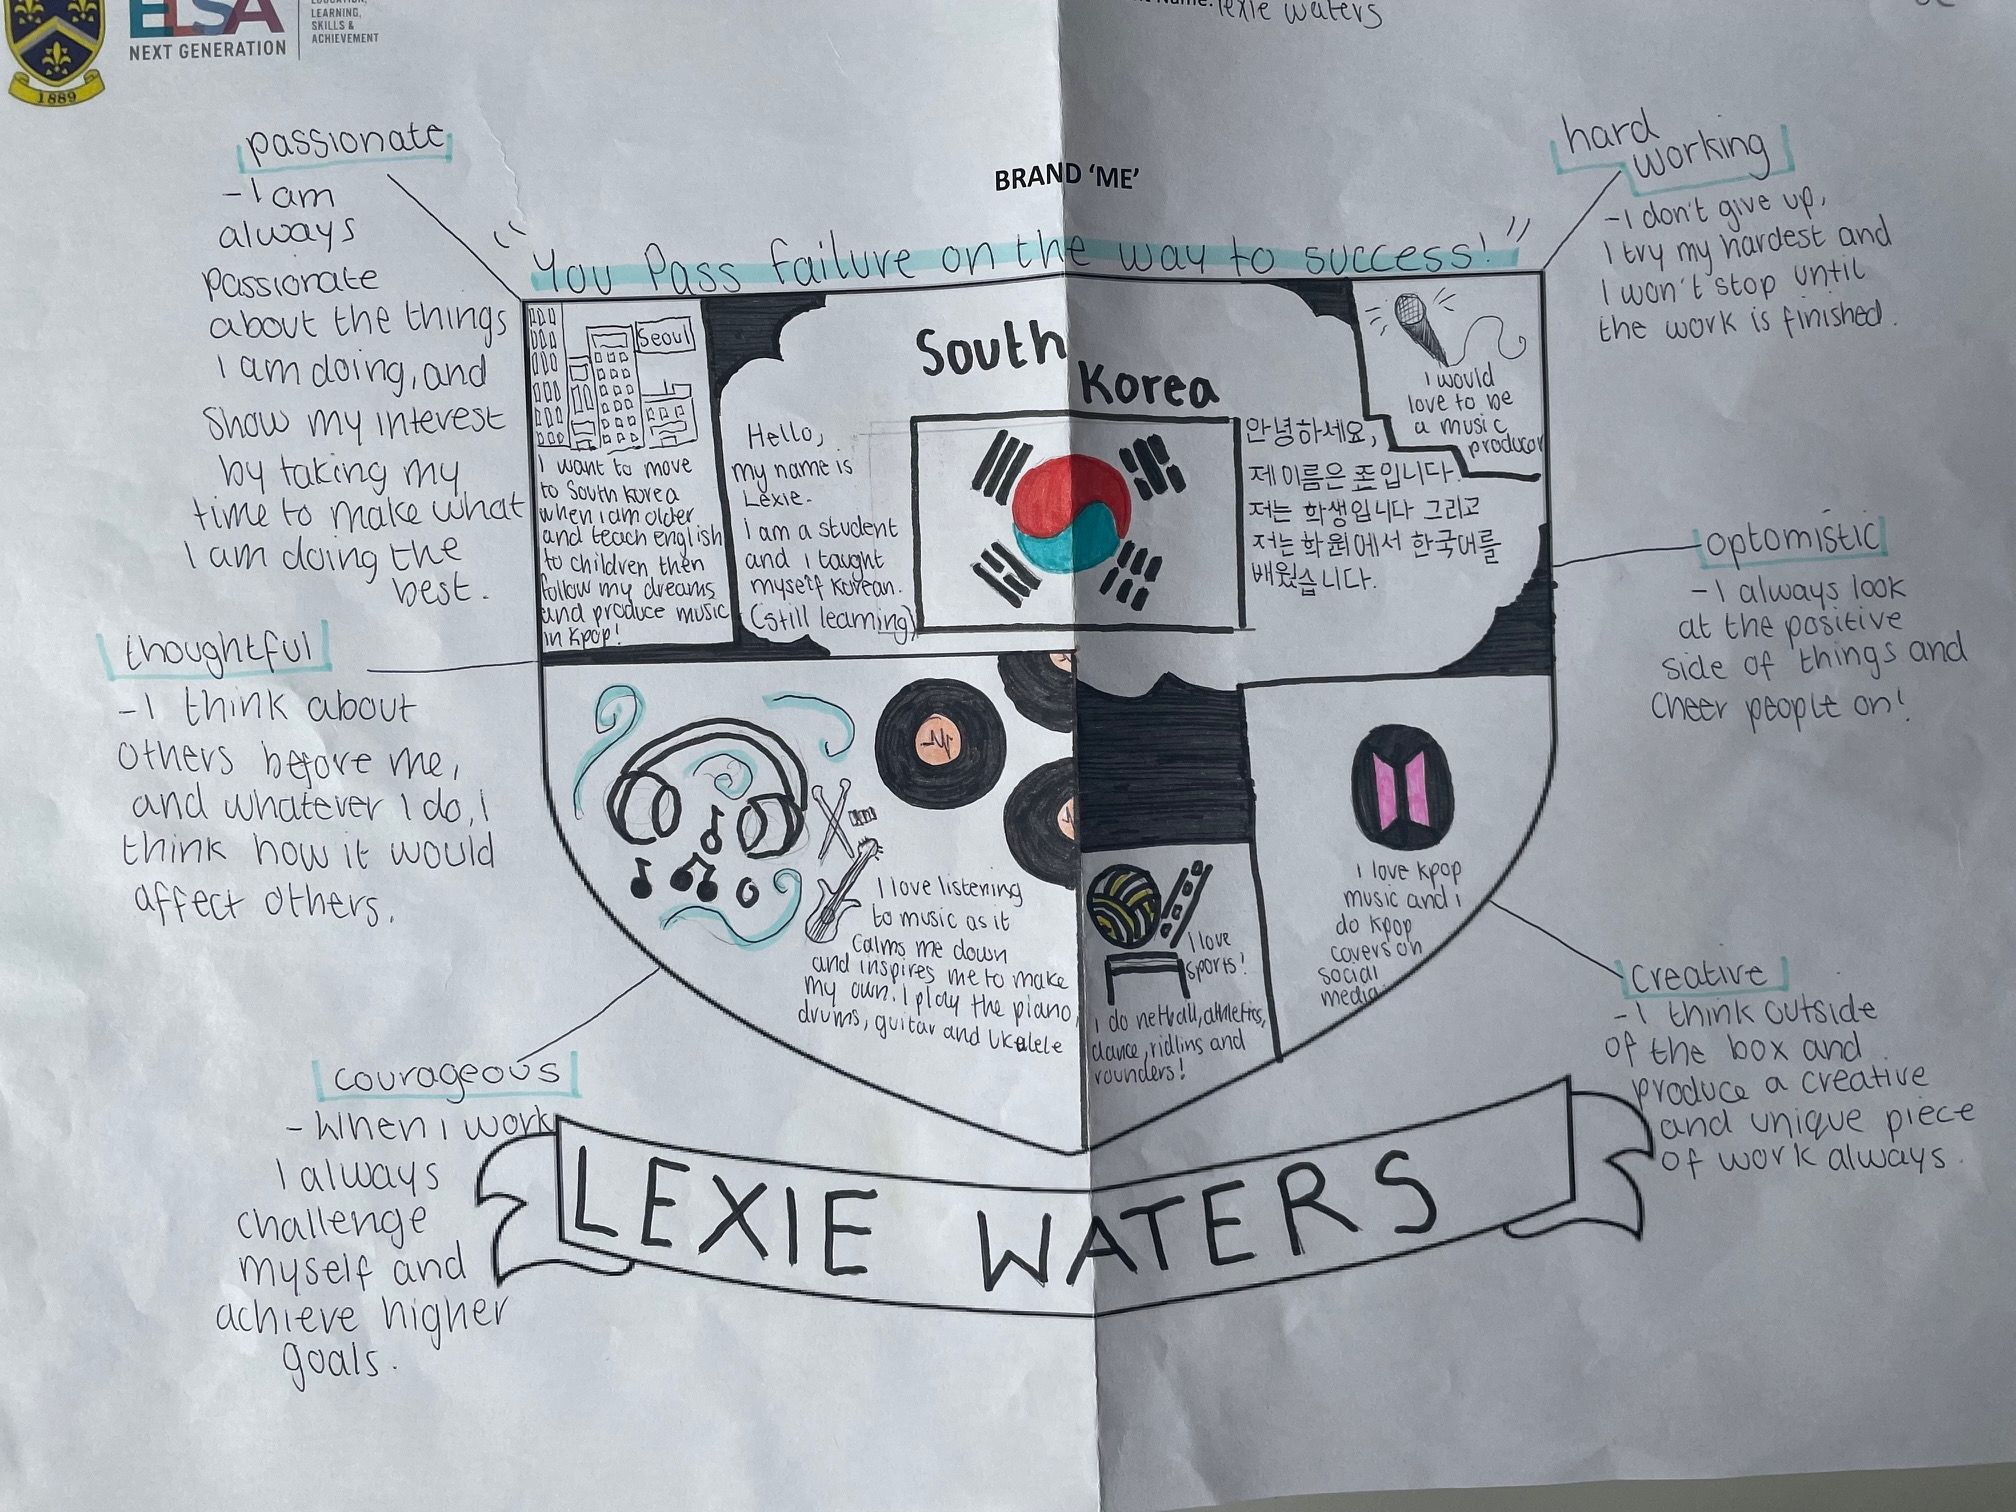 1889
ELSA
NEXT GENERATION
LEARNING,
SKILLS &
ACHIEVEMENT
lexie waters
BRAND ‘ME’
"You Pass failure on the way to success!"
passionate
- I am
always
passionate
about the things
I am doing, and
show my interest
by taking my
time to make what
I am doing the
best.
thoughtful
- I think about
others before me,
and whatever I do, I
think how it would
affect others.
courageous
- When I work
I always
challenge
myself and
achieve higher
goals.
Seoul
I want to move
to South Korea
when i am older
and teach english
to children then
follow my dreams
and produce music
in Kpop!
South
Korea
Hello,
my name is
Lexie.
I am a student
and i taught
myself Korean.
(still learning)
안녕하세요,
제 이름은 죤입니다.
저는 학생입니다 그리고
저는 학원에서 한국어를
배웠습니다.
I would
love to be
a music
producer
I love listening
to music as it
calms me down
and inspires me to make
my own. I play the piano,
drums, guitar and ukelele
I love
sports!
I do netball, athletics,
dance, ridins and
rounders!
I love kpop
music and i
do kpop
covers on
social
media.
hard
working
- I don't give up,
I try my hardest and
I won't stop until
the work is finished.
optomistic
- I always look
at the positive
side of things and
cheer people on!
creative
- I think outside
of the box and
produce a creative
and unique piece
of work always.
LEXIE WATERS